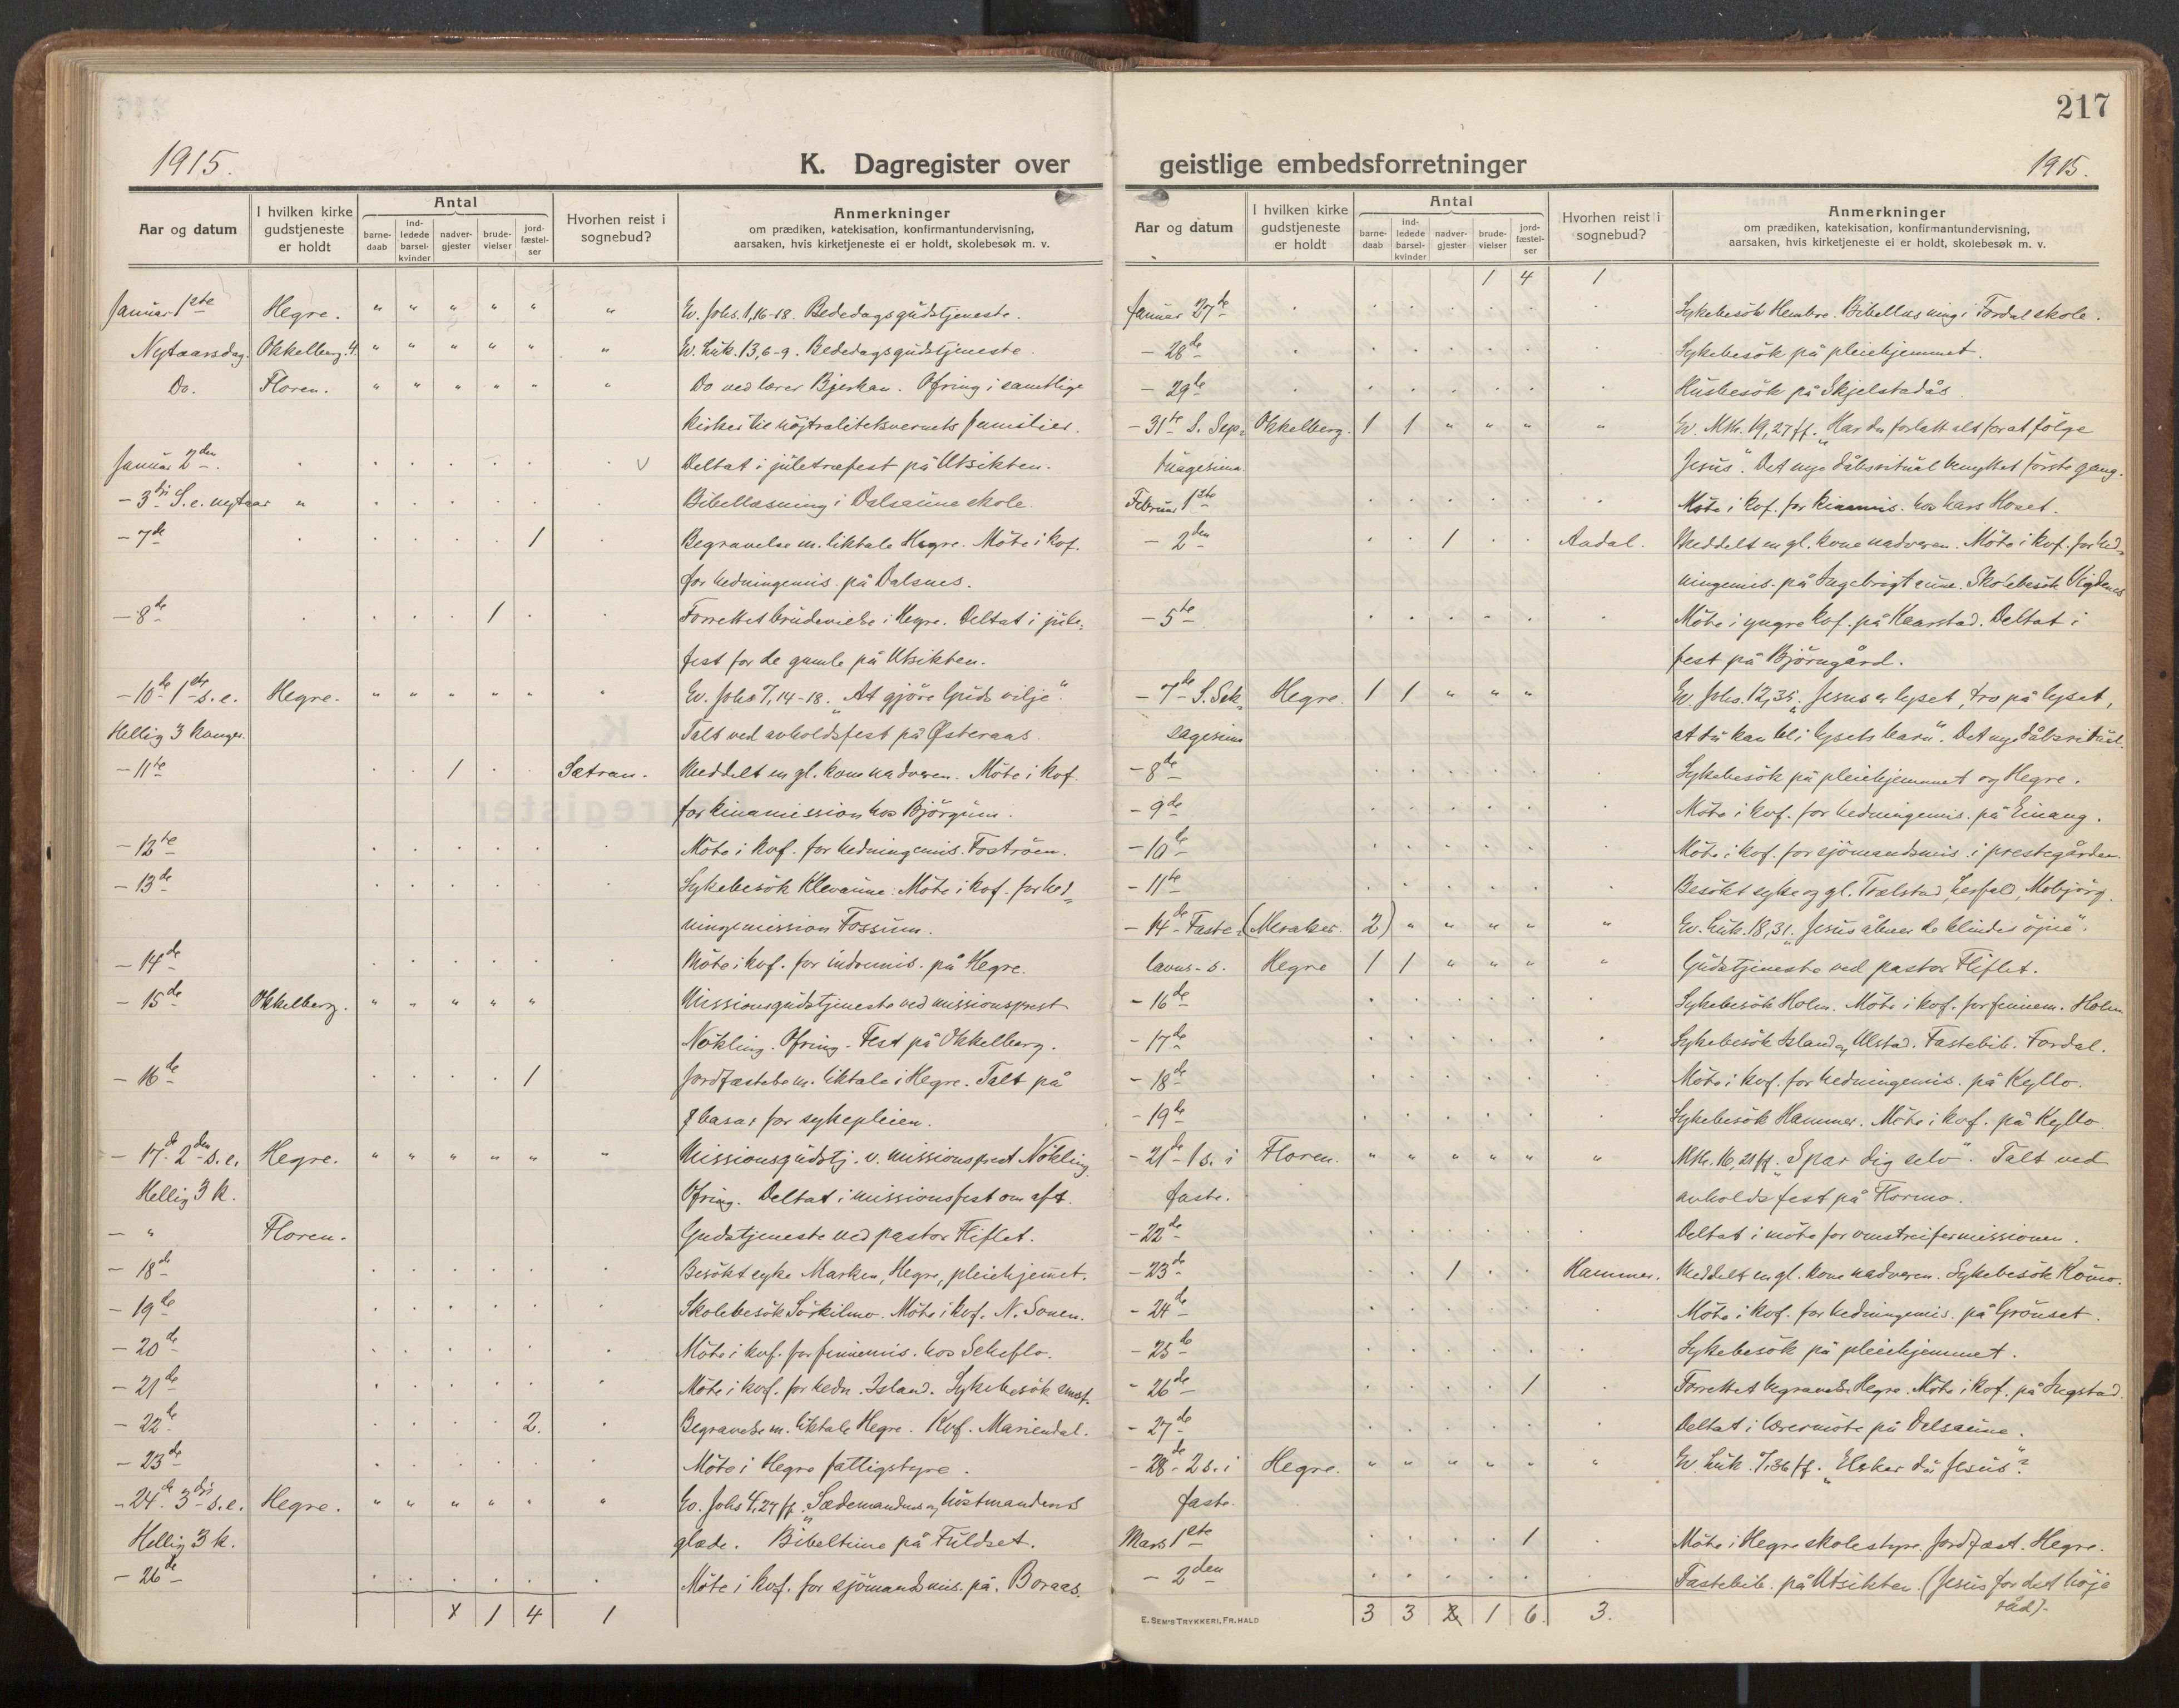 217
1915.
K. Dagregister over
Aar og datum
I hvilken kirke gudstjeneste er holdt
Antal
barne-daab
ind-ledede barsel-kvinder
nadver-gjester
brude-vielser
jord-fæstel-ser
Hvorhen reist i sognebud?
Anmerkninger
om prædiken, katekisation, konfirmantundervisning,
aarsaken, hvis kirketjeneste ei er holdt, skolebesøk m. v.
Januar 1ste Hegre. " " " " " " Ev. Johs. 1,16-18. Bededagsgudstjeneste.
Nytaarsdag. Okkelberg. 4. " " " " " " Ev. Luk. 13,6-9. Bededagsgudstjeneste.
Do. Floren. " " " " " " Do ved lærer Bjerkan. Ofring i samtlige
kirker til nöjtralitetsvernets familier.
Januar 2den Deltat i juletræfest på Utsikten.
- 3die S. e. nytaar " Bibellæsning i Dalsaune skole.
- 7de 1 Begravelse m. liktale Hegre. Möte i kvf.
for hedningemis. på Dalsnes.
- 8de 1 Forrettet brudevielse i Hegre. Deltat i jule-
fest for de gamle på Utsikten.
- 10de 1ste s. e. Hegre. " " " " " " Ev. Johs 7,14-18. "At gjöre Guds vilje".
Hellig 3 konger. Talt ved avholdsfest på Østeraas.
- 11te 1 Sætran. Meddelt en gl. kone nadveren. Möte i kvf.
for kinamission hos Björgum.
- 12te Möte i kvf. for hedningemis. Foströen.
- 13de Sykebesök Klevaune. Möte i kvf. for hed-
ningemission Fossum.
- 14de Möte i kvf. for indremis. på Hegre.
- 15de Okkelberg. " " " " " Missionsgudstjeneste ved missionsprest
Nökling. Ofring. Fest på Okkelberg.
- 16de 1 Jordfæstelse m. liktale i Hegre. Talt på
basar for sykepleien.
- 17de 2den s. e. Hegre. " " " " " " Missionsgudstj. v. missionsprest Nökling.
Hellig 3 k. Ofring. Deltat i missionsfest om aft.
- " Floren. Gudstjeneste ved pastor Fliflet.
- 18de Besökt syke Marken, Hegre, pleiehjemmet.
- 19de Skolebesök Sörkilmo. Möte i kvf. N. Sonen.
- 20de Möte i kvf. for finnemis. hos Scheflo.
- 21de Möte i kvf. for hedn. Island. Sykebesök smst.
- 22de 2. Begravelse m. liktale Hegre. Kvf. Mariendal.
- 23de Möte i Hegre fattigstyre.
- 24de 3die s. e. Hegre. " " " " " " Ev. Johs 4,27 ff. "Sædemandens og höstmandens
Hellig 3 k. glæde. Bibeltime på Fuldset.
- 26de Möte i kvf. for sjömandsmis. på Boraas.
1 4 1
geistlige embedsforretninger
1915.
Aar og datum
I hvilken kirke gudstjeneste er holdt
Antal
barne-daab
ind-ledede barsel-kvinder
nadver-gjester
brude-vielser
jord-fæstel-ser
Hvorhen reist i sognebud?
Anmerkninger
om prædiken, katekisation, konfirmantundervisning,
aarsaken, hvis kirketjeneste ei er holdt, skolebesøk m. v.
1 4 1
Januar 27de Sykebesök Hembre. Bibellæsning i Fordal skole.
- 28de Sykebesök på pleiehjemmet.
- 29de Husbesök på Skjelstadås.
- 31te S. Sep- Okkelberg. 1 1 " " " " Ev. Mth. 19,27 ff. "Har du forlatt alt for at fölge
tuagesima. Jesus". Det nye dåbsritual benyttet förste gang.
Februar 1ste Möte i kvf. for kinamis. hos Lars Hoset.
- 2den 1 Aadal. Meddelt en gl. kone nadveren. Möte i kvf. for hed-
ningemis. på Ingebrigtaune. Skolebesök Vigdenes
- 5te Möte i yngre kvf. på Kaarstad. Deltat i
fest på Björngård.
- 7de S. Sek- Hegre. 1 1 " " " Ev. Johs. 12,35. "Jesus er lyset, tro på lyset,
sagesima at du kan bli lysets barn". Det nye dåbsritual.
- 8de Sykebesök på pleiehjemmet og Hegre.
- 9de Möte i kvf. for hedningemis. på Einang.
- 10de Möte i kvf. for sjömandsmis. i prestegården.
- 11te Besökt syke og gl. Trælstad, Lerfald, Mobjörg.
- 14de Faste- (Meraker. 2) " " " " " Ev. Luk. 18,31. "Jesus åbner de blindes öjne".
lavns-s. Hegre 1 1 " " " " Gudstjeneste ved pastor Fliflet.
- 16de Sykebesök Holm. Möte i kvf. for finnem. Holm
- 17de Sykebesök Island og Ulstad. Fastebib. Fordal.
- 18de Möte i kvf. for hedningemis. på Kyllo.
- 19de Sykebesök Hammer. Möte i kvf. på Kyllo.
- 21de 1 s. i Floren. " " " " " " Mth. 16,21 ff. "Spar dig selv". Talt ved
faste. avholdsfest på Flormo.
- 22de Deltat i möte for omstreifermissionen.
- 23de 1 Hammer. Meddelt en gl. kone nadveren. Sykebesök Kömo.
- 24de Möte i kvf. for hedningemis. på Grönset.
- 25de Sykebesök på pleiehjemmet.
- 26de 1 Forrettet begravelse Hegre. Möte i kvf. på Ingstad.
- 27de Deltat i lærermöte på Dalsaune.
- 28de 2 s. i Hegre. " " " " " " Ev. Luk. 7,36 ff. "Elsker du Jesus"?
faste.
Mars 1ste 1 Möte i Hegre skolestyre. Jordfæst. Hegre.
- 2den Fastebib. på Utsikten. (Jesus for det höje
råd)-
3 3 2 1 6. 3.
E. SEM'S TRYKKERI, FR.HALD